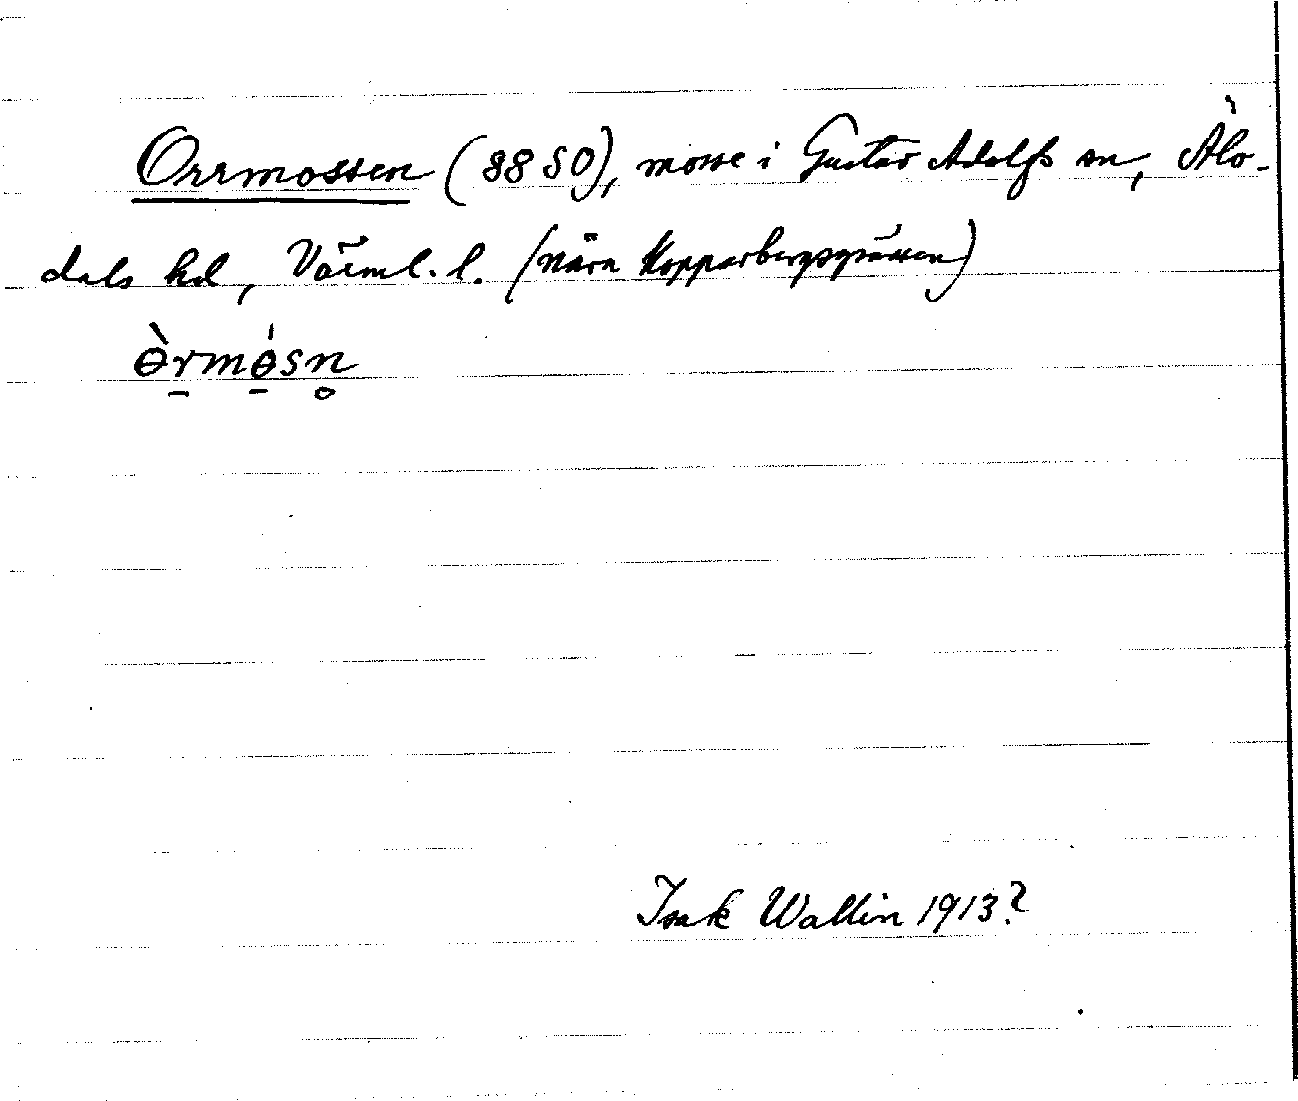 Orrmossen (88 SO), mosse i Gustav Adolfs sn, Älv-
dals hd, Värml. l. (nära Kopparbergsgränsen)
ɵ̀r̠mɵ̠́sn̥
Isak Wallin 1913?